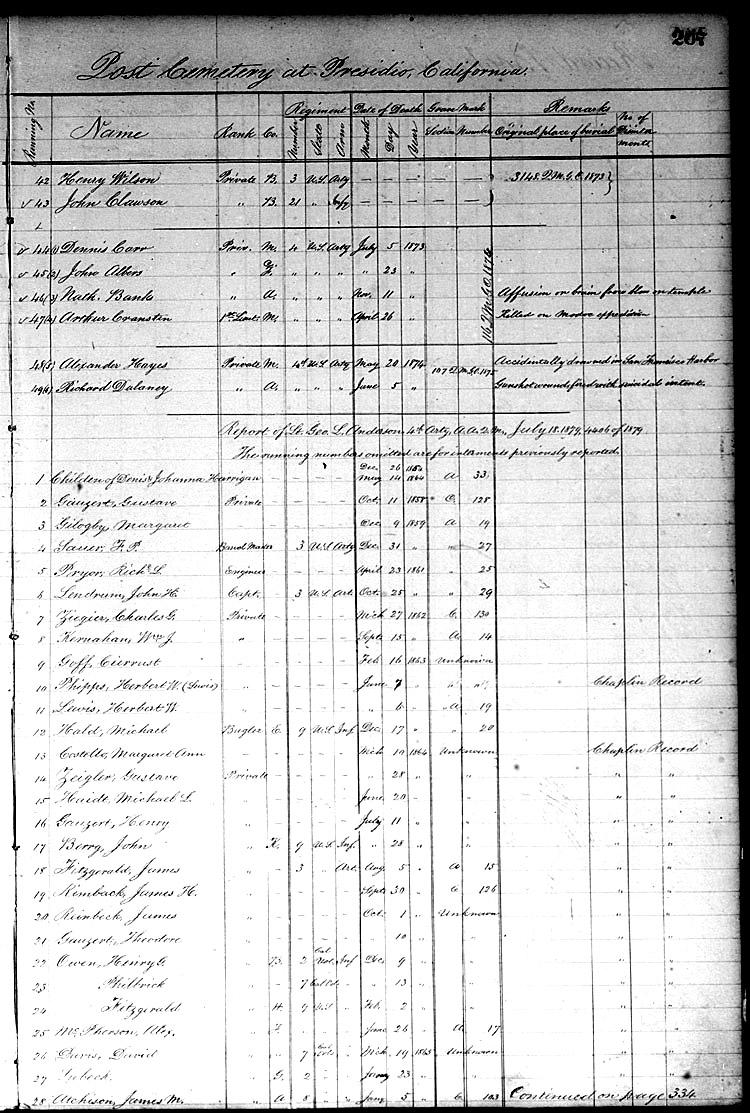 207
Post Cemetery at Presidio, California.
Running No. Name Rank Co. Regiment Date of Death Grave Mark Remarks
Number State Arm Month Day Year Section Number Original place of burial No. of month
42 Henry Wilson Private B. 3 U.S. Arty — — — — — 3148 Q.M.G.O. 1873
43 John Clawson " B. 21 " Infy — — — — —
44(1) Dennis Carr Priv. M. 4 U.S. Arty July 5 1873
45(2) John Albers " " " " " 23 "
46(3) Nath. Banks " A. " " " Nov. 11 " Affusion on brain from blow on temple
47(4) Arthur Cranston 1st Lieut. M. " " " April 26 " Killed on Modoc expedition
48(5) Alexander Hayes Private M. 4th U.S. Arty May 20 1874 107 Q.M.G.O. 1875 Accidentally drowned in San Francisco Harbor
49(6) Richard Dalaney " A. " " " June 5 " Gunshot wound fired with suicidal intent.
Report of Lt. Geo. L. Anderson, 4th Arty, A.A.Q.M., July 18. 1879, 4406 of 1879
The running numbers omitted are for interments previously reported.
Dec. 26
1 Children of Denis & Johanna Harrigan May 14 1864 A 33
2 Gauzert, Gustave Private — — — — Oct. 11 1858 C. 128
3 Gilogby, Margaret — — — — Dec. 9 1859 A 19
4 Sauer, F. P. Band Master 3 U.S. Arty Dec. 31 " " 27
5 Pryor, Richd. L. Engineer — — — — April 23 1861 " 25
6 Lendrum, John H. Capt. 3 U.S. Art. Oct. 25 " " 29
7 Ziegier, Charles G. Private — — — — Mich 27 1862 C. 130
8 Kernahan, Wm. J. " — — — — Sept. 15 " A 14
9 Goff, — — — — Feb 16 1863 Unknown
10 Phipps, Herbert W. (Lewis) " — — — — June 7 " " " Chaplin Record
11 Lewis, Herbert W. " — — — — " 6 " A 19
12 Hald, Michael Bugler E. 9 U.S. Inf. Dec. 17 " " 20
13 Costello, Margaret Ann — — — — Mich 19 1864 Unknown Chaplin Record
14 Zeigler, Gustave Private — — — — " 28 " " " "
15 Haidt, Michael L. " — — — — June 20 " " " "
16 Gauzert, Henry " — — — — July 11 " " " "
17 Berry, John " K. 9 U.S. Inf. " 28 " " " "
18 Fitzgerald, James " 3 " Art. Aug. 5 " A 15 " "
19 Kimback, James H. " — — — — Sept. 30 " C 126 " "
20 Reinbeck, James " — — — — Oct. 1 " Unknown " "
21 Gauzert, Theodore " — — — — " 10 " " " "
22 Owen, Henry G. " B. 2 Cal Vol. Inf Dec. 9 " " " "
23 Philbrick " 7 Cal Vol. " " 13 " " " "
24 Fitzgerald " H. 9 U.S. " Feb. 2 " " " "
25 McPherson, Alex. " F — — — June 26 " A 17 " "
26 Davis, David " 7 Cal Vols " Mich 19 1865 Unknown " "
27 " G. 2 " " Jany 23 " " " "
28 Atchison, James M. " A 8 " " Jany 5 " C 103 Continued on page 334